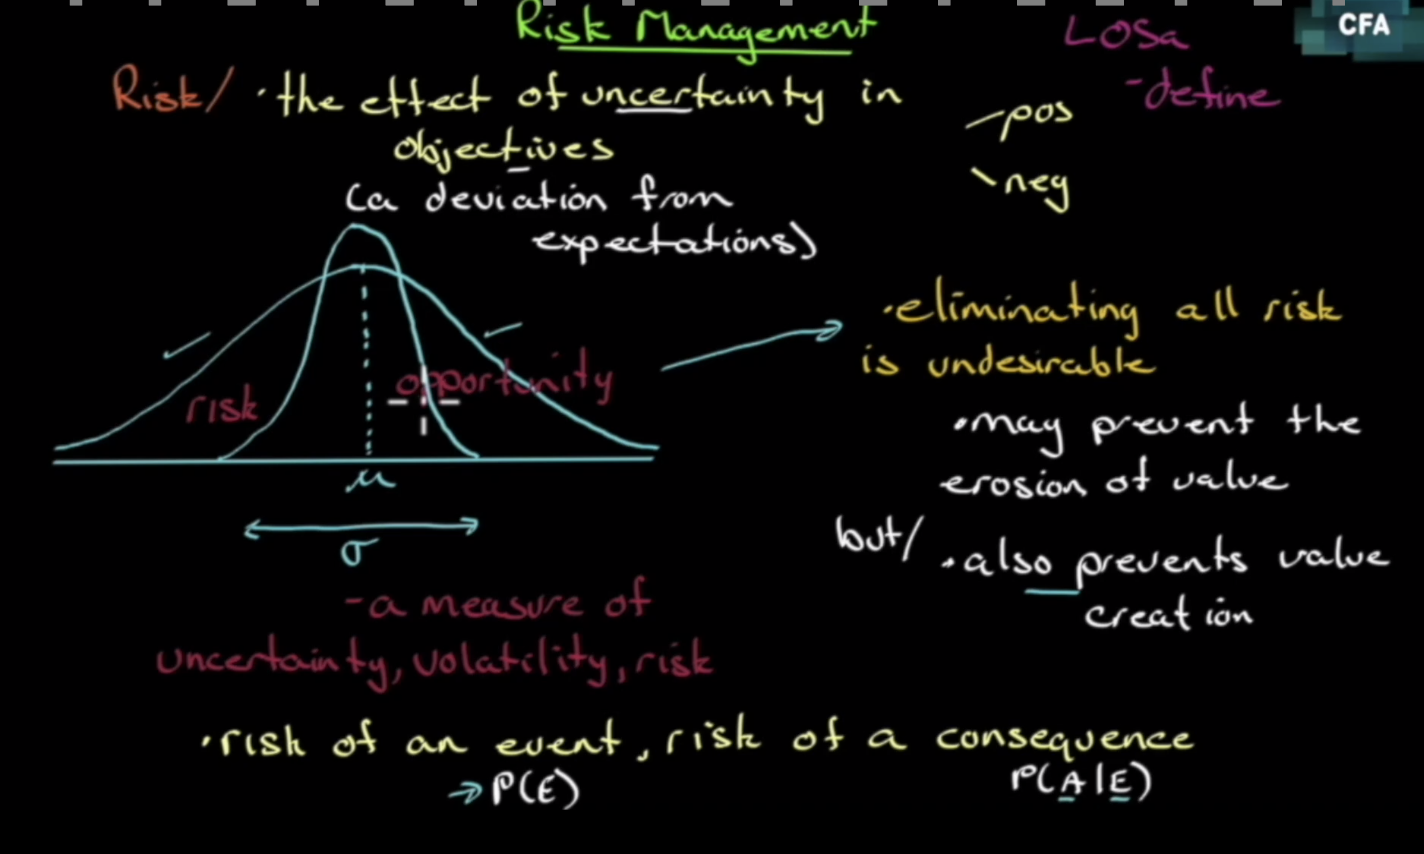 Risk Management
LOSa
CFA
- define
Risk/ · the effect of uncertainty in
objectives
(a deviation from
expectations)
pos
neg
risk
opportunity
μ
σ
- a measure of
uncertainty, volatility, risk
· eliminating all risk
is undesirable
· may prevent the
erosion of value
but/ · also prevents value
creation
· risk of an event, risk of a consequence
→ P(E)
P(A|E)